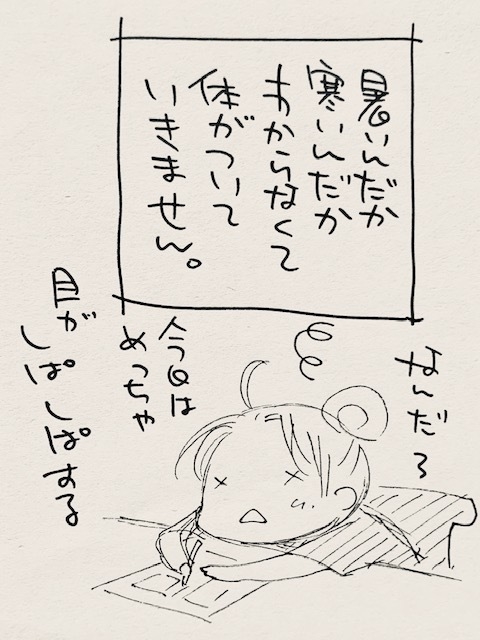 暑いんだか
寒いんだか
わからなくて
体がついて
いきません。
なんだろ
今日は
めっちゃ
目が
しぱしぱする